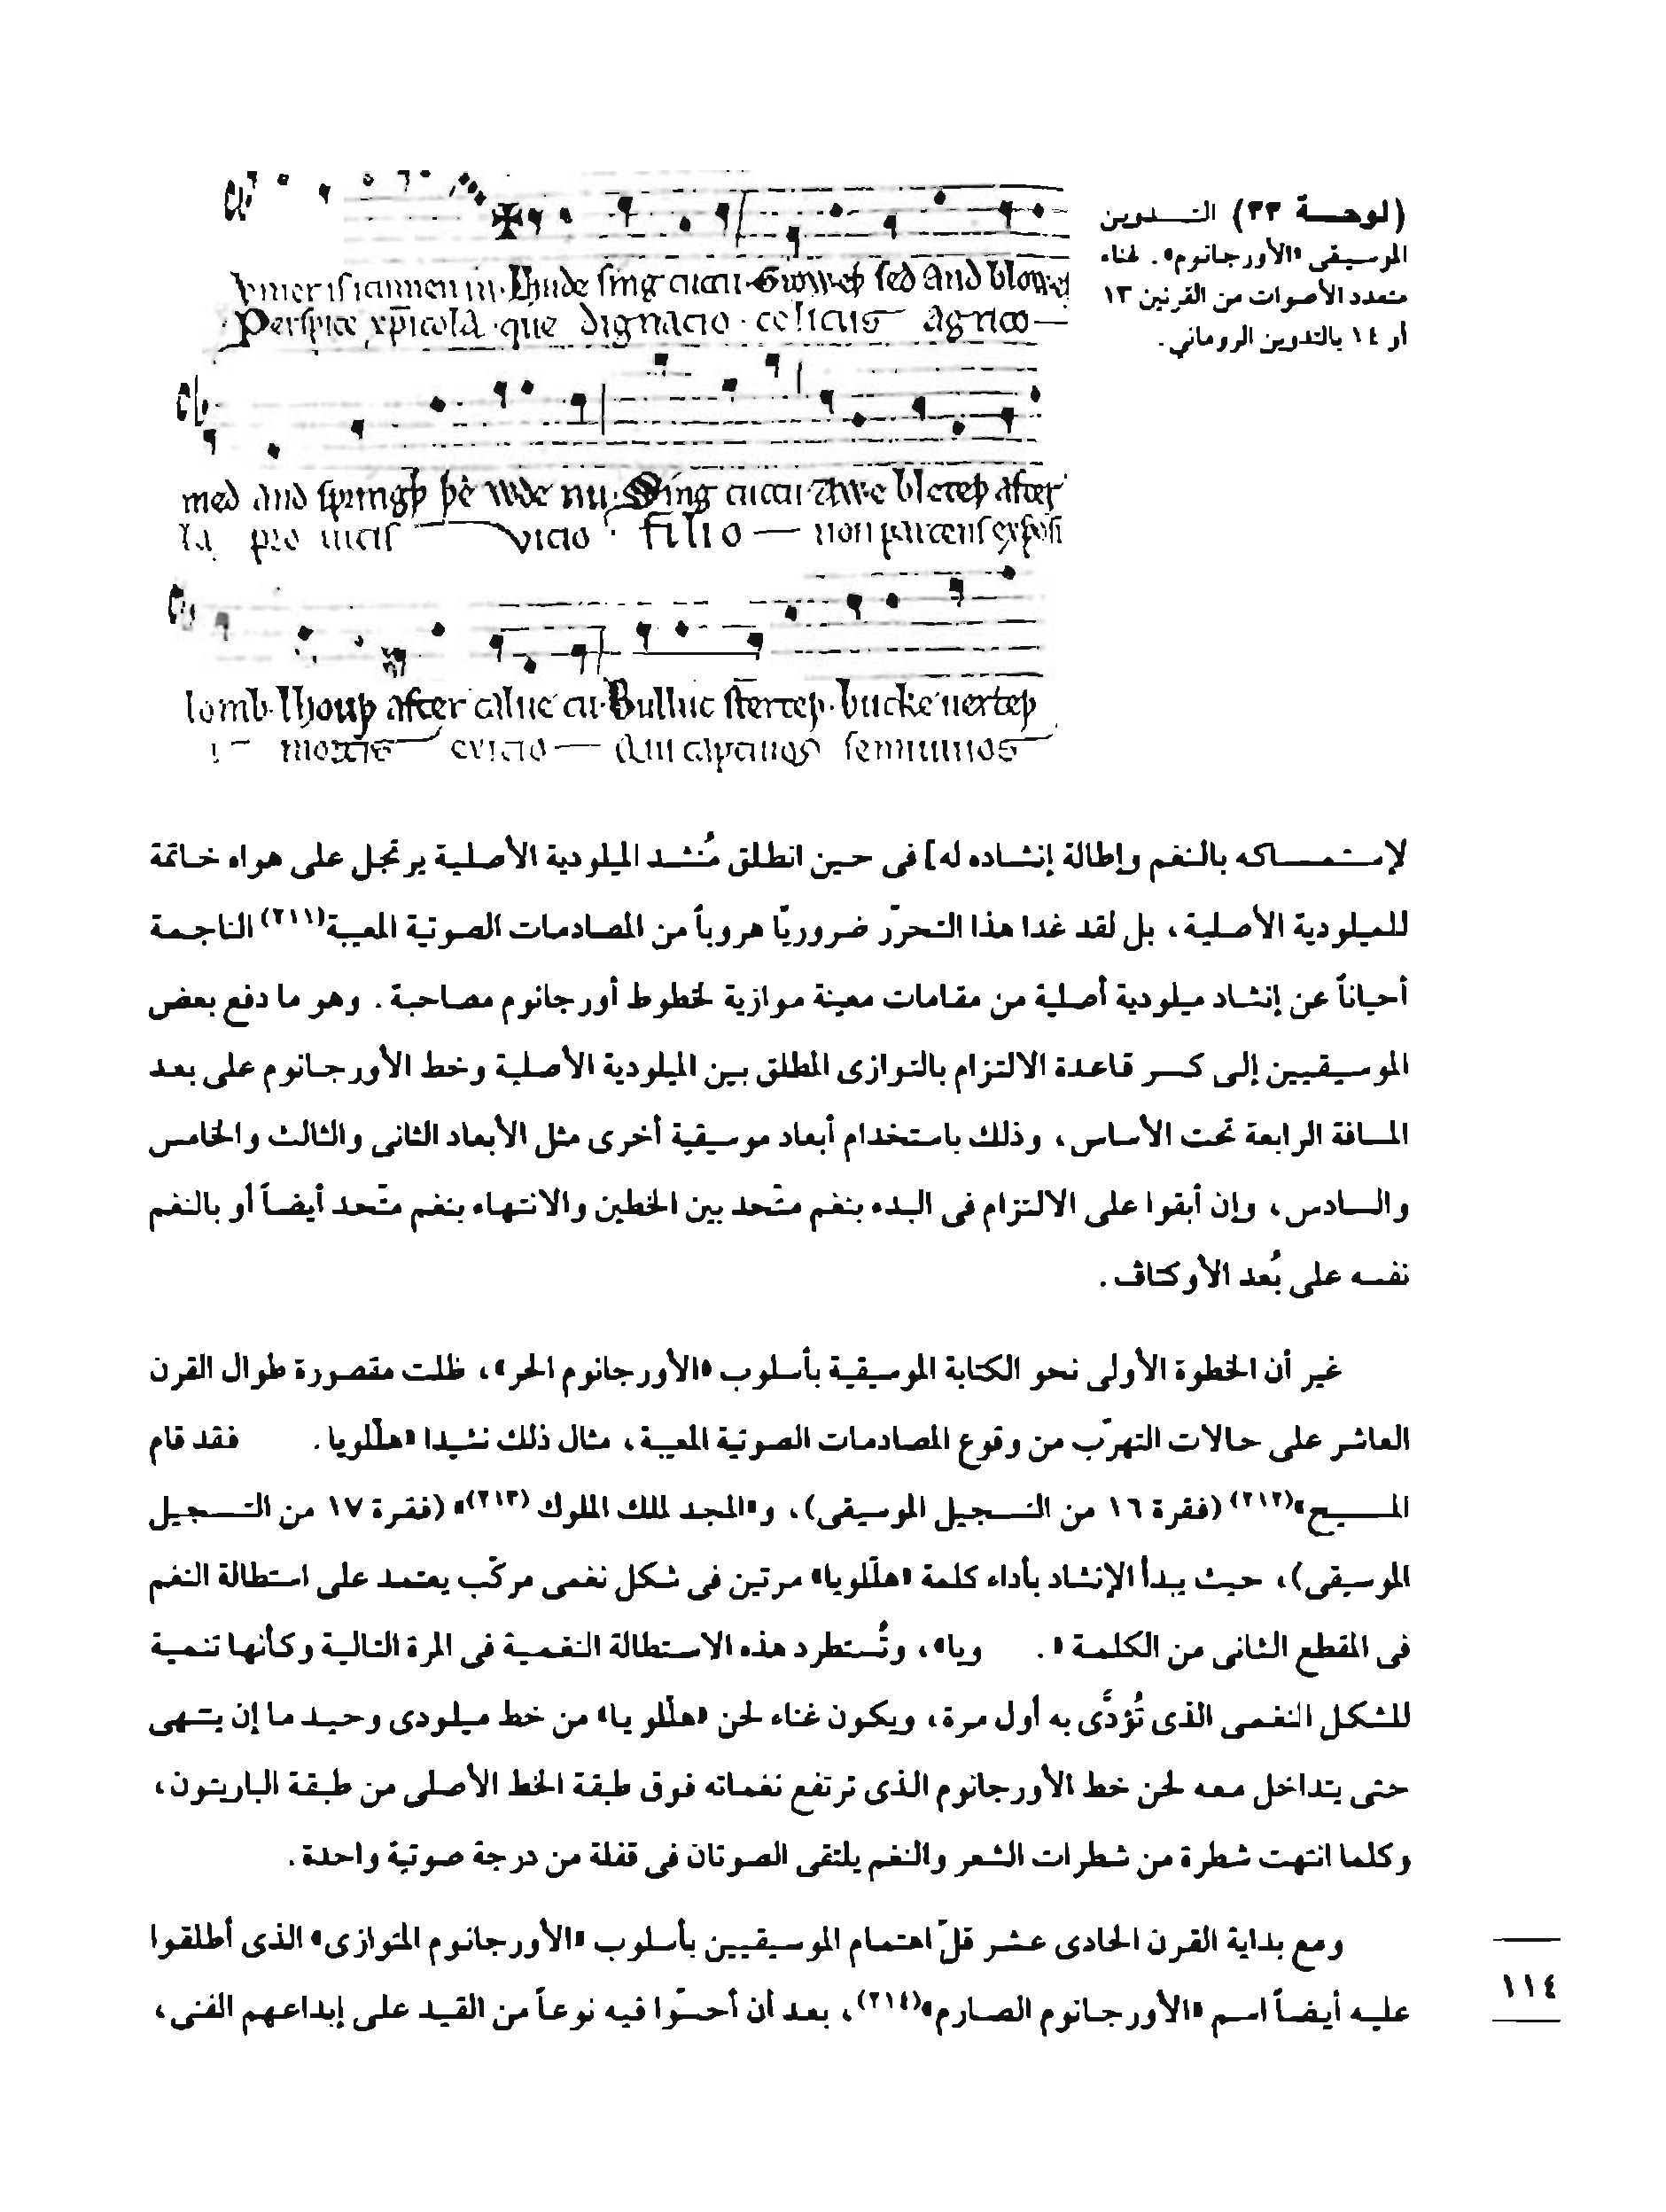 (لوحة ٣٣) التدوين
الموسيقى «الأورجانوم». لغناء
متعدد الأصوات من القرنين ١٣
أو ١٤ بالتدوين الروماني.
in. Lhude sing cuccu. Groweþ sed and bloweþ
Perspice xp̄icola. que dignacio. celicus agrico
med and springþ þe wde nu. Sing cuccu. Awe bleteþ after
la pro uitis vicio. filio non parcens exposi
lomb. lhouþ after calue cu. Bulluc sterteþ. bucke uerteþ
mortis exicio Qui captiuos semiuiuos
لإستمساكه بالنغم وإطالة إنشاده له] فى حين انطلق مُنشد الميلودية الأصلية يرتجل على هواه خاتمة
للميلودية الأصلية، بل لقد غدا هذا التحرّر ضروريّا هروباً من المصادمات الصوتية المعيبة(٢١١) الناجمة
أحياناً عن إنشاد ميلودية أصلية من مقامات معينة موازية لخطوط أورجانوم مصاحبة. وهو ما دفع بعض
الموسيقيين إلى كسر قاعدة الالتزام بالتوازى المطلق بين الميلودية الأصلية وخط الأورجانوم على بعد
المسافة الرابعة تحت الأساس، وذلك باستخدام أبعاد موسيقية أخرى مثل الأبعاد الثانى والثالث والخامس
والسادس، وإن أبقوا على الالتزام فى البدء بنغم متّحد بين الخطين والانتهاء بنغم متّحد أيضاً أو بالنغم
نفسه على بُعد الأوكتاڤ.
غير أن الخطوة الأولى نحو الكتابة الموسيقية بأسلوب «الأورجانوم الحر»، ظلت مقصورة طوال القرن
العاشر على حالات التهرّب من وقوع المصادمات الصوتية المعيبة، مثال ذلك نشيدا «هلّلويا. فقد قام
المسيح»(٢١٢) (فقرة ١٦ من التسجيل الموسيقى)، و«المجد لملك الملوك (٢١٣)» (فقرة ١٧ من التسجيل
الموسيقى)، حيث يبدأ الإنشاد بأداء كلمة «هلّلويا» مرتين فى شكل نغمى مركّب يعتمد على استطالة النغم
فى المقطع الثانى من الكلمة «. ويا»، وتُستطرد هذه الاستطالة النغمية فى المرة التالية وكأنها تنمية
للشكل النغمى الذى تُؤدَّى به أول مرة، ويكون غناء لحن «هلّلو يا» من خط ميلودى وحيد ما إن ينتهى
حتى يتداخل معه لحن خط الأورجانوم الذى ترتفع نغماته فوق طبقة الخط الأصلى من طبقة الباريتون،
وكلما انتهت شطرة من شطرات الشعر والنغم يلتقى الصوتان فى قفلة من درجة صوتية واحدة.
ومع بداية القرن الحادى عشر قلّ اهتمام الموسيقيين بأسلوب «الأورجانوم المتوازى» الذى أطلقوا
عليه أيضاً اسم «الأورجانوم الصارم»(٢١٤)، بعد أن أحسّوا فيه نوعاً من القيد على إبداعهم الفنى،
١١٤